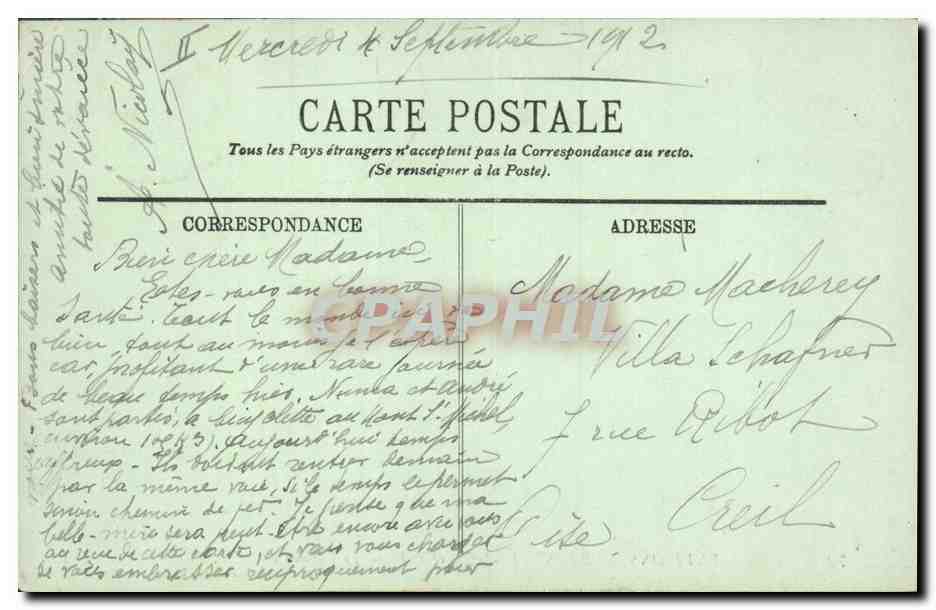 II Mercredi 4 Septembre 1912
CARTE POSTALE
Tous les Pays étrangers n'acceptent pas la Correspondance au recto.
(Se renseigner à la Poste).
CORRESPONDANCE
Bien chère Madame,
Êtes-vous en bonne
santé. Tout le monde ici va
bien tout au moins je l'espère
car, profitant d'une rare journée
de beau temps hier. Numa et André
sont partis, à bicyclette au Mont St Michel,
environ 10 Aujourd'hui temps
affreux - Ils doivent rentrer demain
par la même voie, si le temps le permet
sinon chemin de fer. Je pense que ma
belle-mère sera peut-être encore avec vous
au reçu de cette carte, et vais vous charger
de vous embrasser réciproquement pour
nous - Bons baisers et bien sincère
amitié de votre
toute dévouée
A. Nicolaÿ
ADRESSE
Madame Macherey
Villa Schafner
7 rue Ribot
Creil
Oise
CPAPHIL